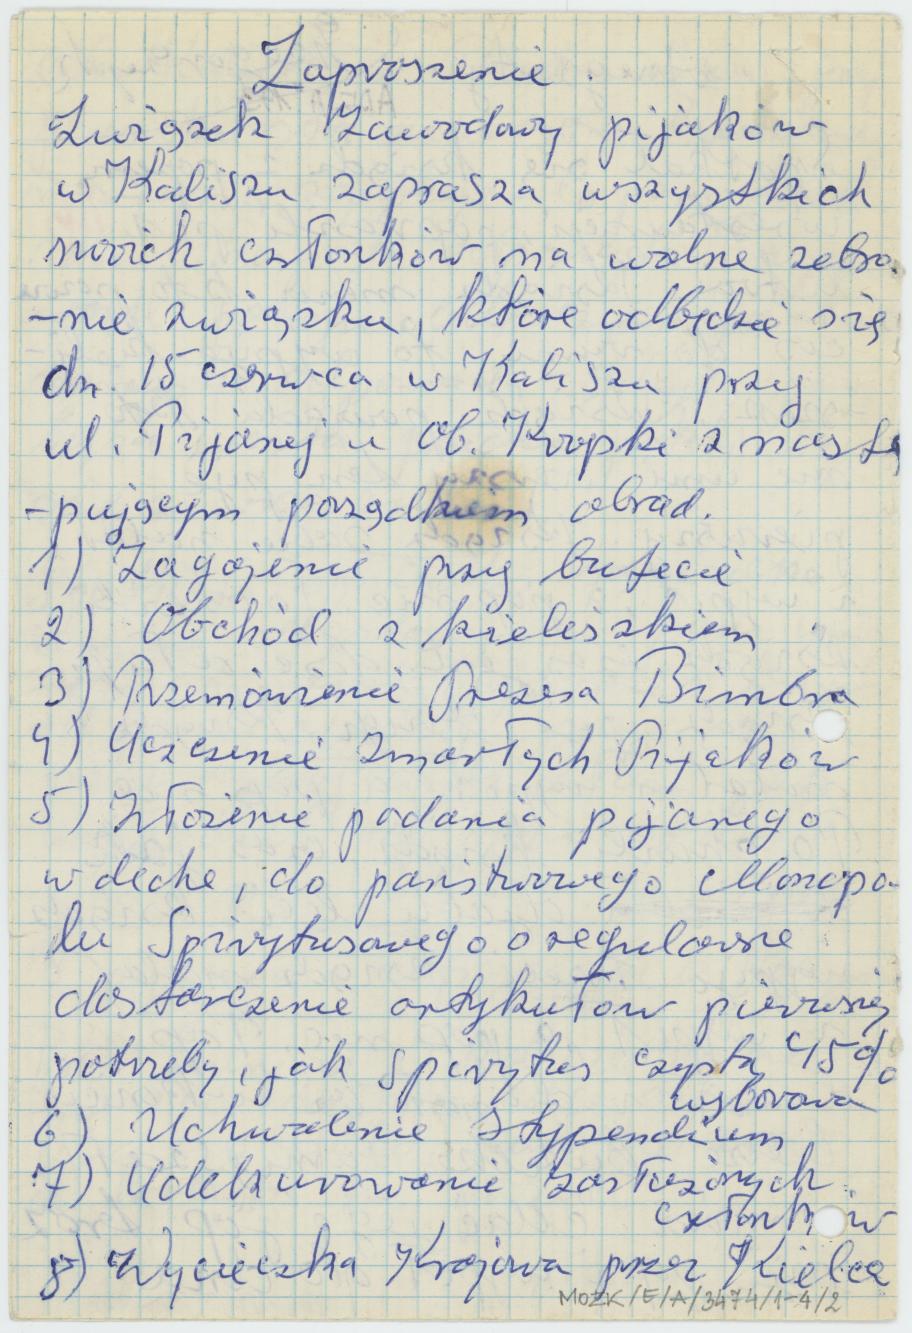 Zaproszenie.
Związek Zawodowy pijaków
w Kaliszu zaprasza wszystkich
swoich członków na walne zebra-
-nie związku, które odbędzie się
dn. 15 czerwca w Kaliszu przy
ul. Pijanej u Ob. Kropki z nastę
-pującym porządkiem obrad.
1) Zagajenie przy bufecie
2) Obchód z kieliszkiem
3) Przemówienie Prezesa Bimbra
4) Uczczenie Zmarłych Pijaków
5) Złożenie podania pijanego
w deche, do państwowego Monopo-
lu Spirytusowego o regularne
dostarczenie artykułów pierwszej
potrzeby, jak Spirytus czysta 45%
wyborowa
6) Uchwalenie Stypendium
7) Udekorowanie zasłużonych
członków
8) Wycieczka Krajowa przez Kielce
MOZK/E/A/3474/1-4/2